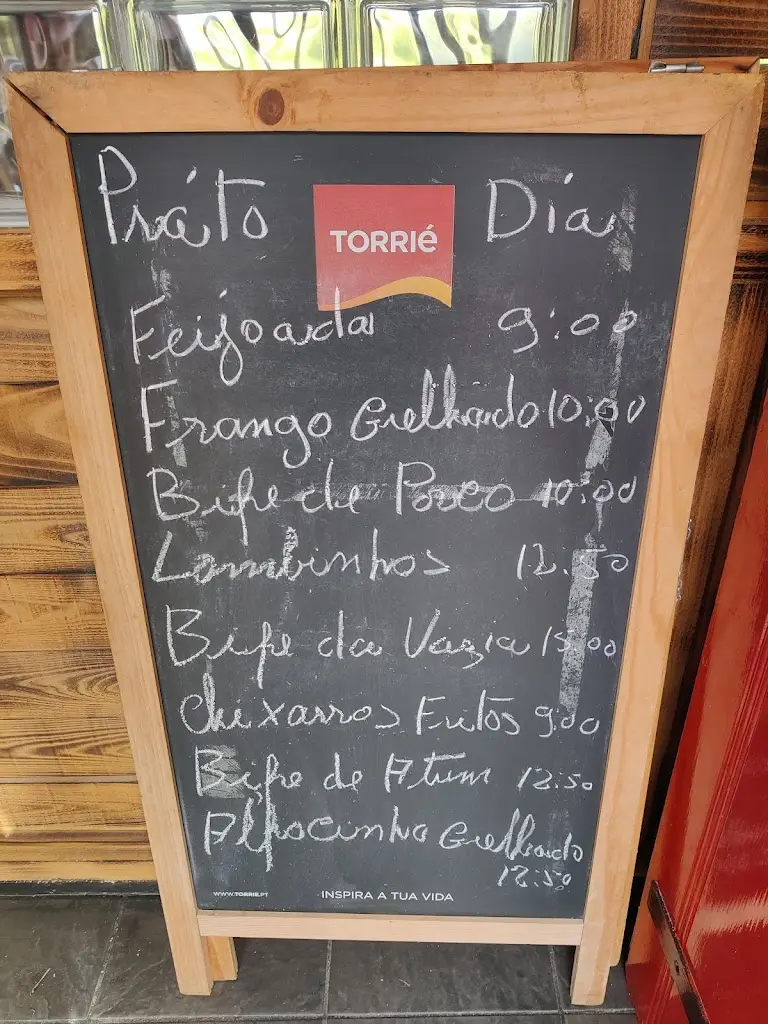 Práto Día
TORRIÉ
Feijoada 9:00
Frango Grelhado 10:00
Bife de Porco 10:00
Lambinhos 12.50
Bife da Vazia 15:00
Chixarros Fritos 9:00
Bife de Atum 12:50
Alfrocinho Grelhado
12:50
WWW.TORRIE.PT INSPIRA A TUA VIDA